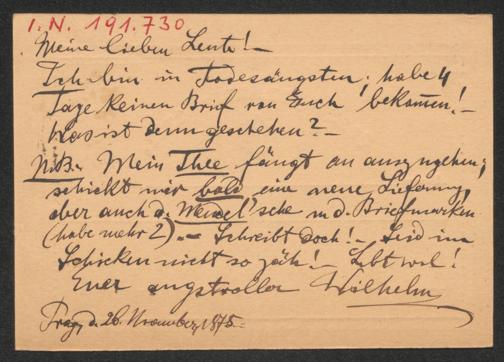 I. N. 191.730
Meine lieben Leute! –
Ich bin in Todesängsten; habe 4
Tage keinen Brief von Euch bekommen! –
Was ist denn geschehen? –
N.B. Mein Thee fängt an auszugehen;
schickt mir bald eine neue Lieferung,
aber auch d. sche u. d. Briefmarken
(habe mehr 2). – Schreibt doch! – Seid im
Schicken nicht so zäh! Lebt wol!
Euer angstvoller Wilhelm
Prag, d. 26. November 1875.